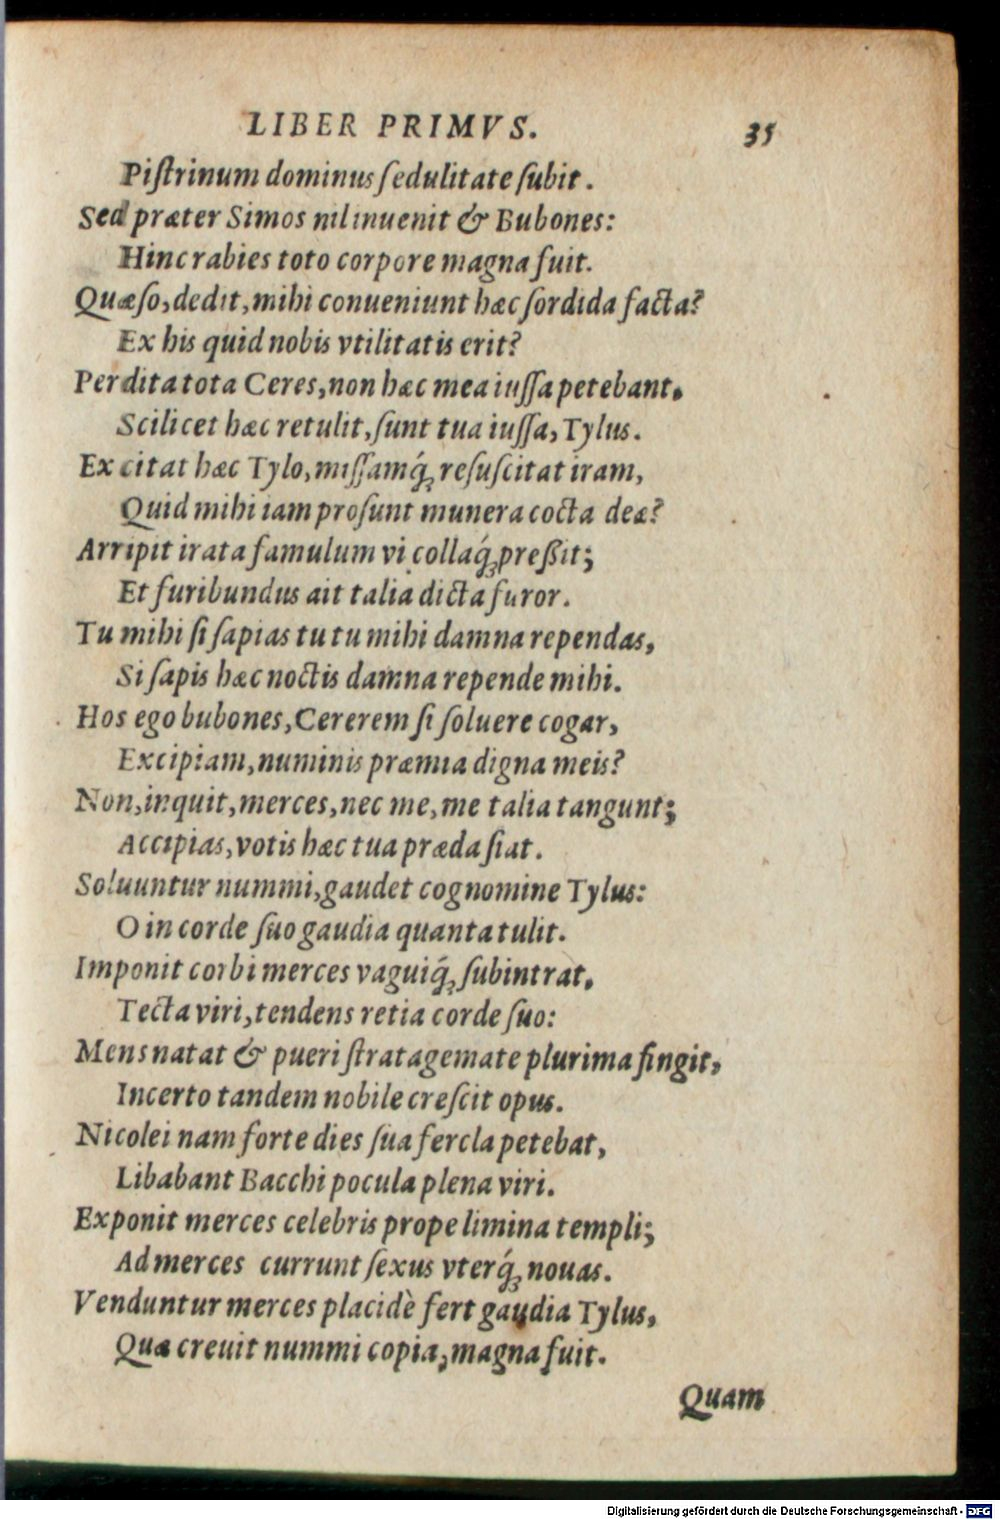 LIBER PRIMVS. 35
Piſtrinum dominus ſedulitate ſubit.
Sed præter Simos nil inuenit & Bubones:
Hinc rabies toto corpore magna fuit.
Quæſo, dedit, mihi conueniunt hæc ſordida facta?
Ex his quid nobis vtilitatis erit?
Perdita tota Ceres, non hæc mea iuſſa petebant,
Scilicet hæc retulit, ſunt tua iuſſa, Tylus.
Excitat hæc Tylo, miſſamq́; reſuſcitat iram,
Quid mihi iam proſunt munera cocta deæ?
Arripit irata famulum vi collaq́; preßit;
Et furibundus ait talia dicta furor.
Tu mihi ſi ſapias tu tu mihi damna rependas,
Si ſapis hæc noctis damna repende mihi.
Hos ego bubones, Cererem ſi ſoluere cogar,
Excipiam, numinis præmia digna meis?
Non, inquit, merces, nec me, me talia tangunt;
Accipias, votis hæc tua præda fiat.
Soluuntur nummi, gaudet cognomine Tylus:
O in corde ſuo gaudia quanta tulit.
Imponit corbi merces vaguiq́; ſubintrat,
Tecta viri, tendens retia corde ſuo:
Mens natat & pueri ſtratagemate plurima fingit,
Incerto tandem nobile creſcit opus.
Nicolei nam forte dies ſua fercla petebat,
Libabant Bacchi pocula plena viri.
Exponit merces celebris prope limina templi;
Ad merces currunt ſexus vterq́; nouas.
Venduntur merces placidè fert gaudia Tylus,
Quæ creuit nummi copia, magna fuit.
Quam
Digitalisierung gefördert durch die Deutsche Forschungsgemeinschaft - DFG